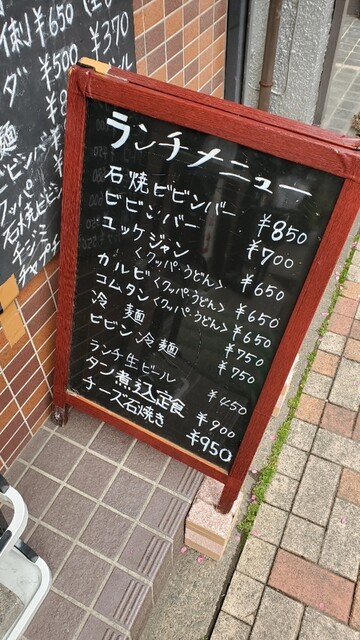 ランチメニュー
石焼ビビンバー ¥850
ビビンバー ¥700
ユッケジャン〈クッパ・うどん〉 ¥650
カルビ〈クッパ・うどん〉 ¥650
コムタン〈クッパ・うどん〉 ¥650
冷麺 ¥750
ビビン冷麺 ¥750
ランチ生ビール ¥450
タン煮込定食 ¥900
チーズ石焼き ¥950
¥650
¥500
¥370
ダ
麺
石焼ビビン
チヂミ
チャプチ